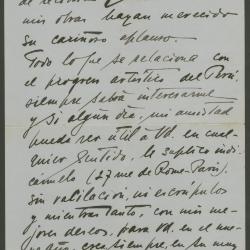 mis obras hayan merecido
su cariñoso aplauso.
Todo lo que se relaciona con
el progreso artístico del Perú,
siempre sabrá interesarme
y si algún día, mi amistad
pueda ser útil a Vd. en cual-
quier sentido, le suplico indi-
carmelo (27 rue de Rome-Paris).
Sin vacilación, ni escrúpulos
y mientras tanto, con mis me-
jores deseos, para Vd. en el nue-
vo año, crea siempre, en su mas